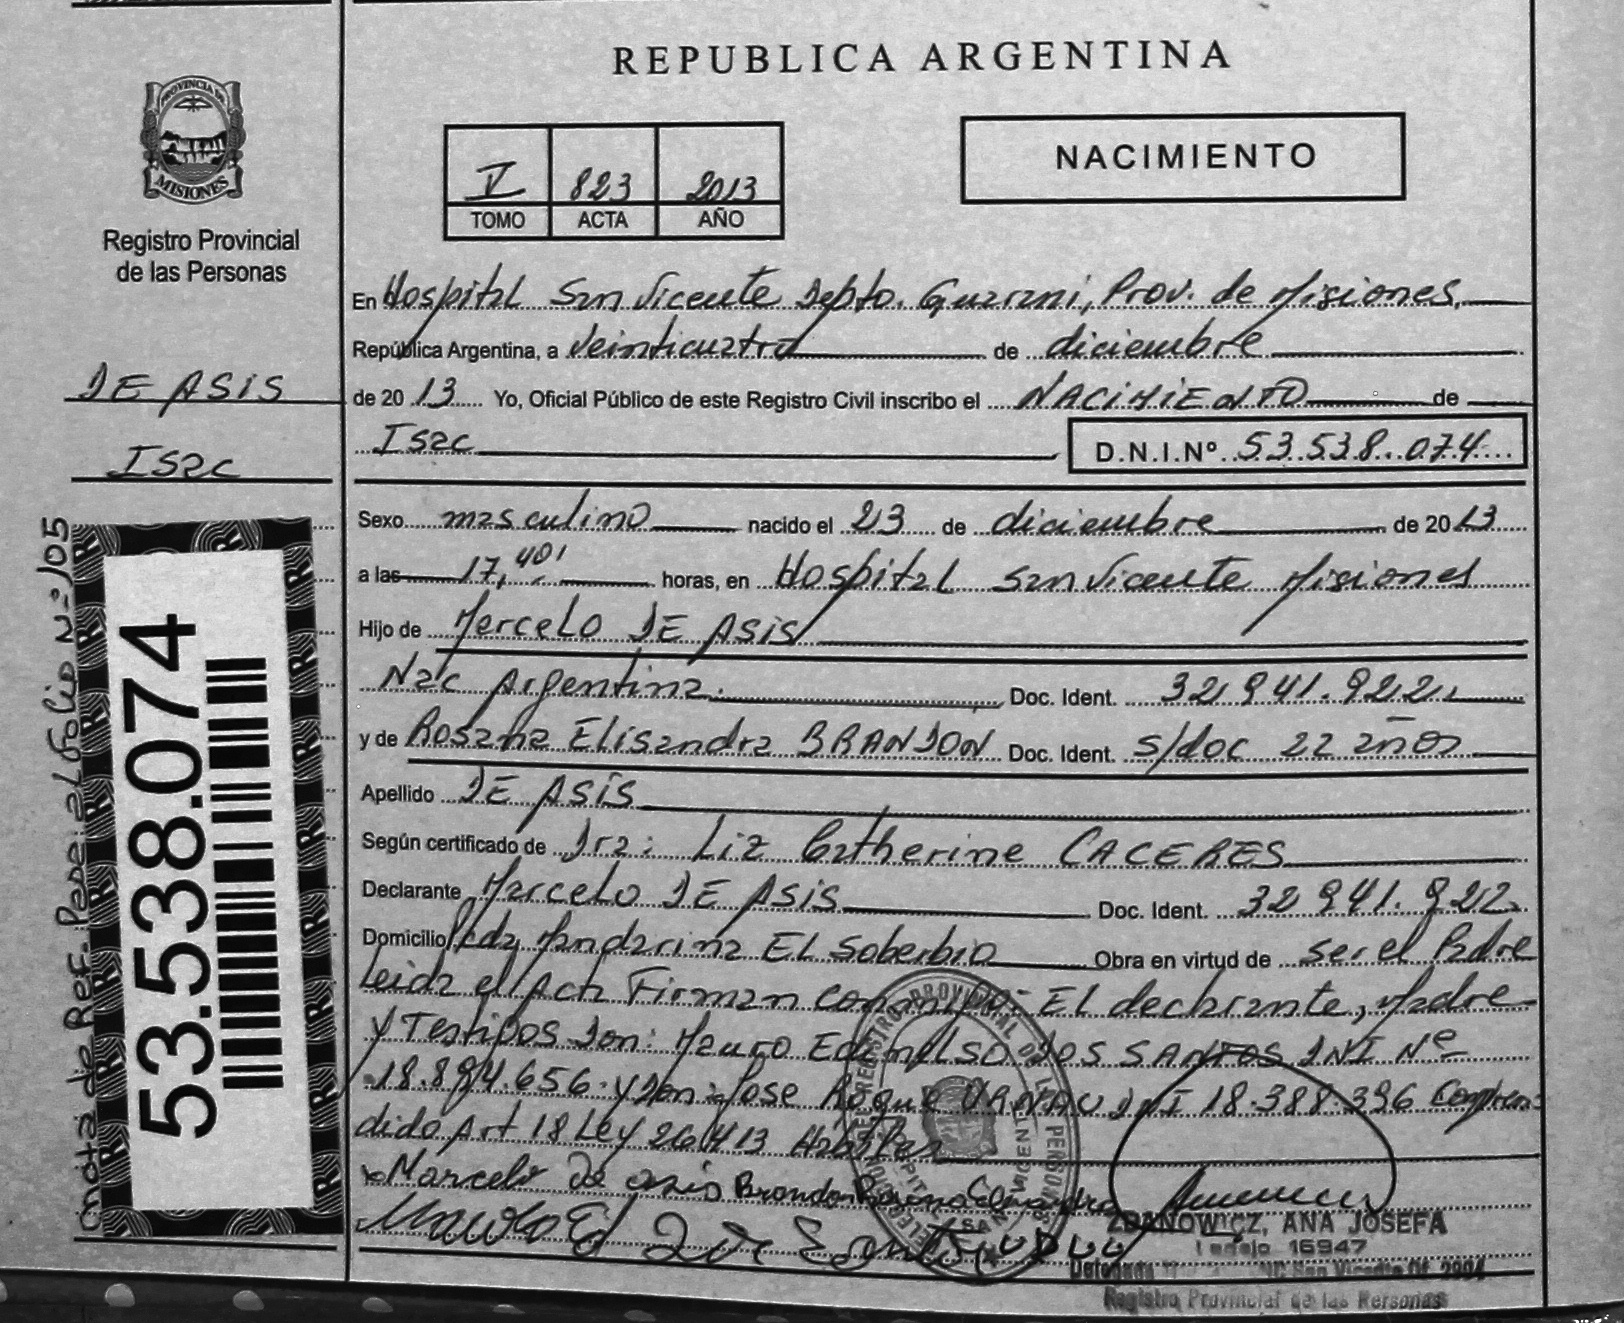 REPUBLICA ARGENTINA
PROVINCIA DE
MISIONES
Registro Provincial
de las Personas
V 823 2013
TOMO ACTA AÑO
NACIMIENTO
En Hospital San Vicente Depto. Guarani, Prov. de Misiones,
República Argentina, a veinticuatro de diciembre
de 2013 Yo, Oficial Público de este Registro Civil inscribo el NACIMIENTO de
Isac D.N.I.Nº 53.538.074
DE ASIS
Isac
Nota de Ref. Folio Nº 105
53.538.074
Sexo masculino nacido el 23 de diciembre de 2013
a las 17,40' horas, en Hospital San Vicente Misiones
Hijo de Marcelo DE ASIS
Nac Argentina. Doc. Ident. 32.941.922
y de Rosana Elisandra BRANDON Doc. Ident. s/doc 22 años
Apellido DE ASIS
Según certificado de Dra: Liz Catherine CACERES
Declarante Marcelo DE ASIS Doc. Ident. 32.941.922
Domicilio Pcda Mandarina EL Soberbio Obra en virtud de ser el Padre
Leida el Acta Firman conmigo: El declarante, Madre
y Testigos Don: Mauro Edmilso DOS SANTOS DNI Nº
18.894.656 y Don: Jose Roque DNI 18.388.396 Compren
dido Art 18 Ley 26413 Habiles
Marcelo De asis Brandon Rosana Elisandra
ZDANOWICZ, ANA JOSEFA
Legajo 16947
Delegada San Vicente Of. 2994
Registro Provincial de las Personas